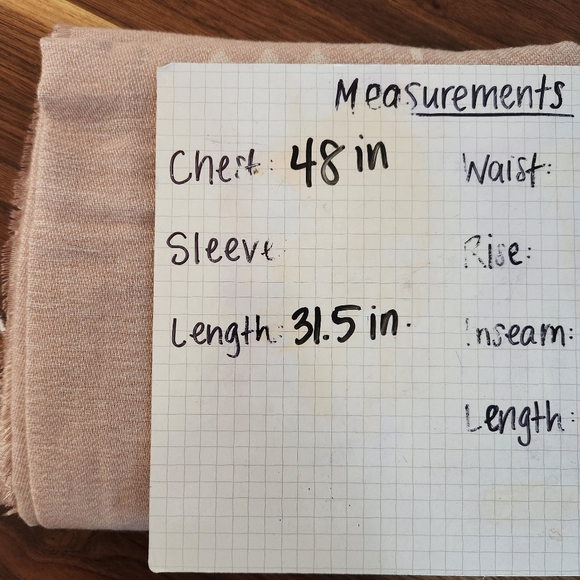 Measurements
Chest: 48 in
Waist:
Sleeve
Rise:
Length: 31.5 in.
Inseam:
Length: